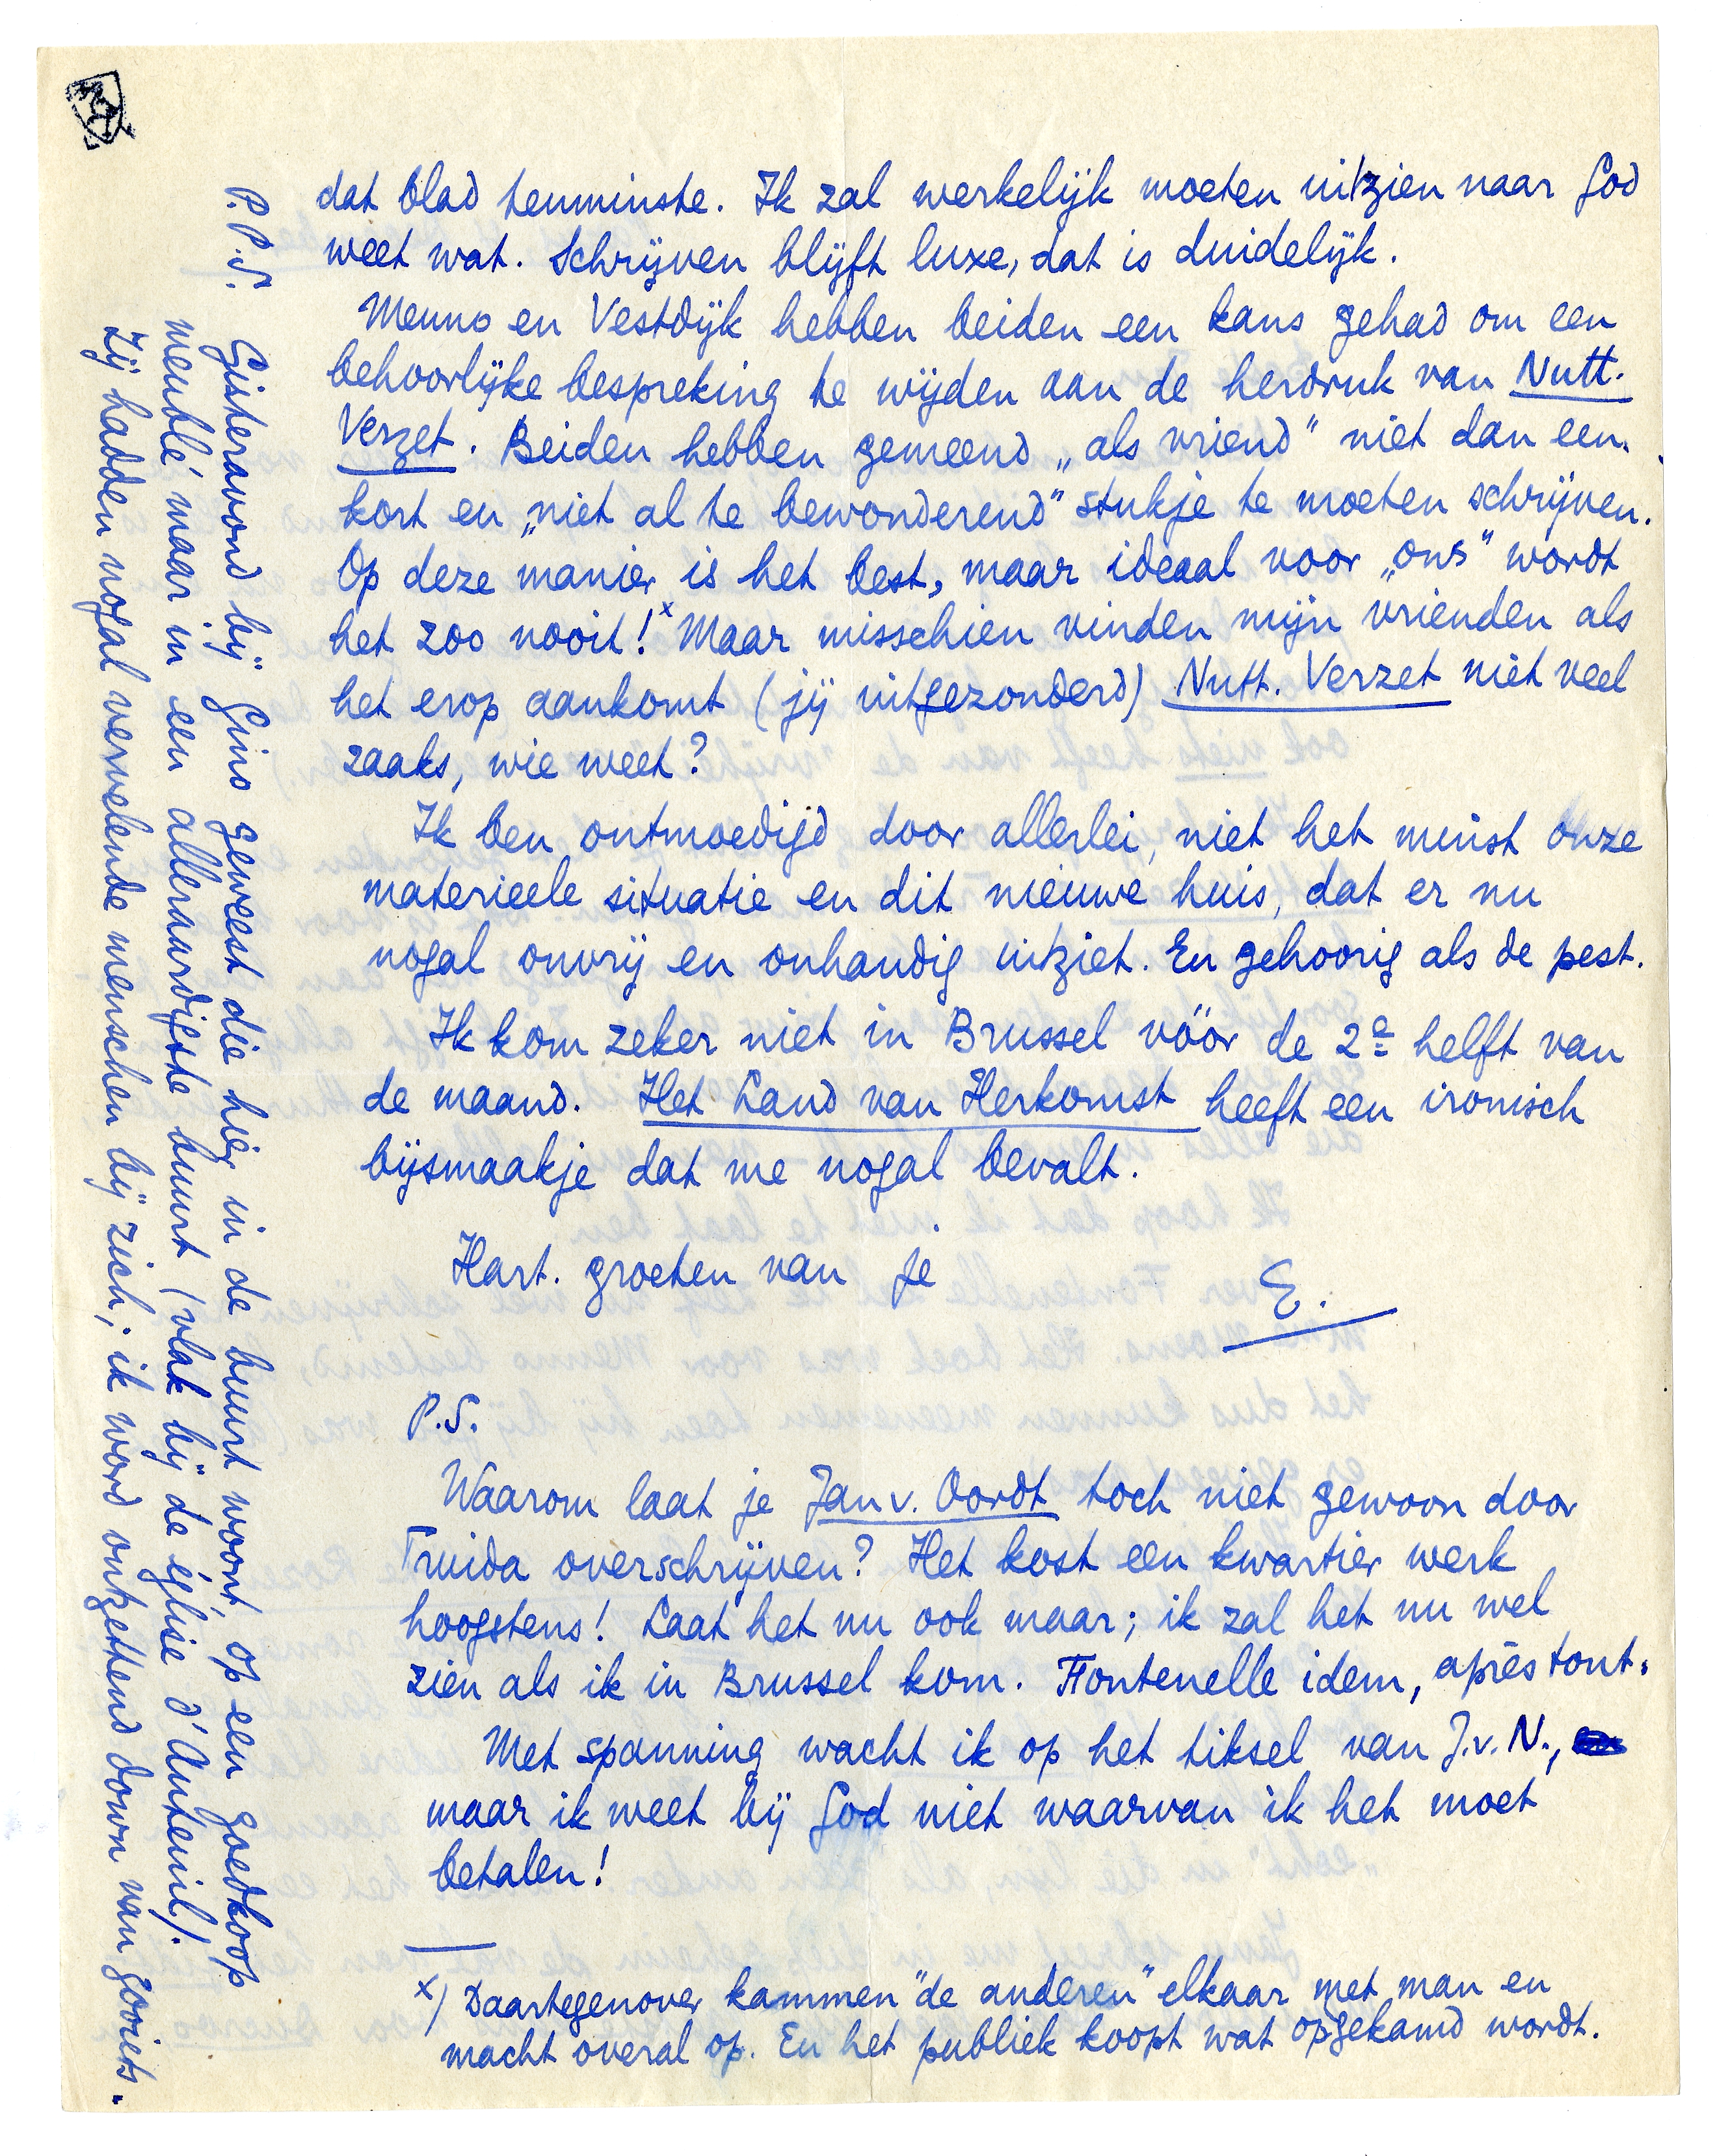 dat blad tenminste. Ik zal werkelijk moeten uitzien naar God
weet wat. Schrijven blijft luxe, dat is duidelijk.
Menno en Vestdijk hebben beiden een kans gehad om een
behoorlijke bespreking te wijden aan de herdruk van Nutt.
Verzet. Beiden hebben gemeend „als vriend" niet dan een
kort en „niet al te bewonderend" stukje te moeten schrijven.
Op deze manier is het best, maar ideaal voor „ons" wordt
het zoo nooit!x Maar misschien vinden mijn vrienden als
het erop aankomt (jij uitgezonderd) Nutt. Verzet niet veel
zaaks, wie weet?
Ik ben ontmoedigd door allerlei, niet het minst onze
materieele situatie en dit nieuwe huis, dat er nu
nogal onvrij en onhandig uitziet. En gehoorig als de pest.
Ik kom zeker niet in Brussel vóór de 2e helft van
de maand. Het Land van Herkomst heeft een ironisch
bijsmaakje dat me nogal bevalt.
Hart. groeten van je
E.
P.S.
Waarom laat je Jan v. Oordt toch niet gewoon door
Truida overschrijven? Het kost een kwartier werk
hoogstens! Laat het nu ook maar; ik zal het nu wel
zien als ik in Brussel kom. Fontenelle idem, après tout.
Met spanning wacht ik op het tiksel van J.v.N.,
maar ik weet bij God niet waarvan ik het moet
betalen!
x) Daartegenover kammen "de anderen" elkaar met man en
macht overal op. En het publiek koopt wat opgekamd wordt.
P.P.S. Gisteravond bij Gino geweest die hier in de buurt woont, op een goedkoop
meublé maar in een alleraardigste buurt (vlak bij de église d'Auteuil).
Zij hadden nogal vervelende menschen bij zich; ik word ontzettend down van zooiets.